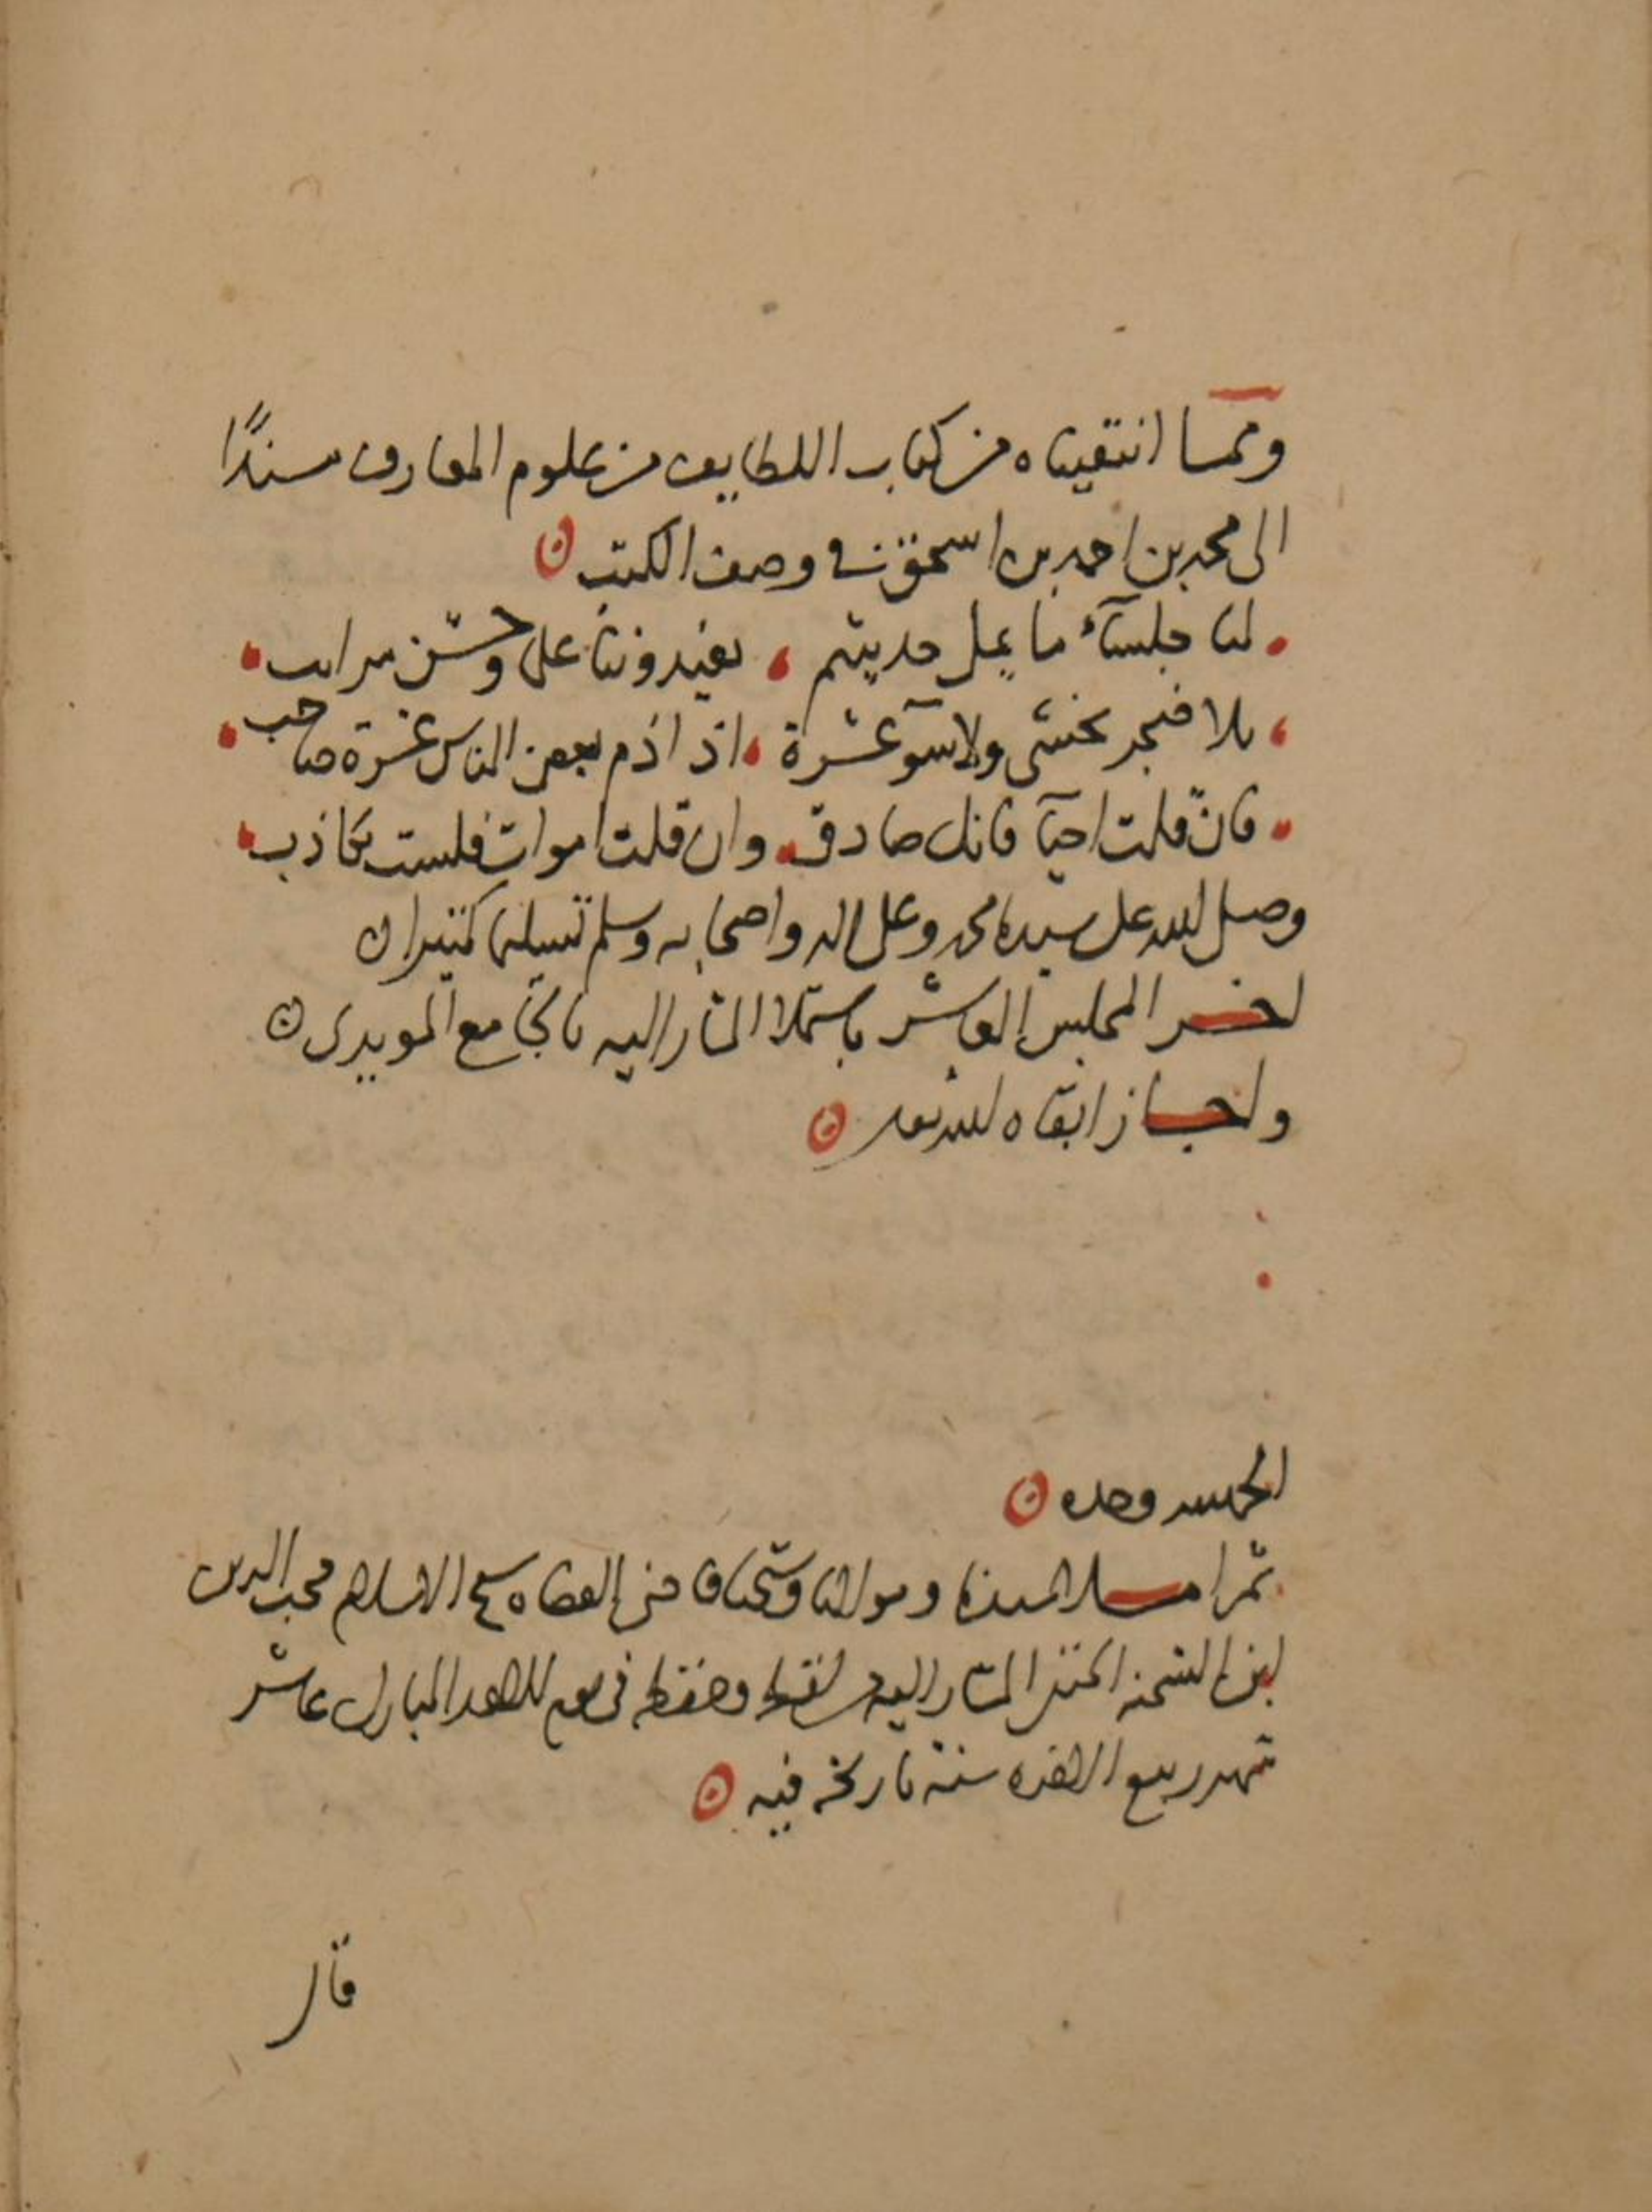 ومما انتقيناه من كتاب اللطايف من علوم المعارف سندًا
الى محمد بن احمد بن اسحق في وصف الكتب
لنا جلسآء ما يمل حديثهم يفيدوننا على وحسن
بلا ضجر نخشى ولا سوٓ عشرة اذا ذم بعض الناس عشرة صاحب
فان قلت احيآ فانك صادق وان قلت اموات فلست بكاذب
وصلى الله على سيدنا محمد وعلى اله واصحابه وسلم تسليما كثيرا
اخر المجلس العاشر باستملا المشار اليه بالجامع المويدى
واجاز ابقاه الله تعالى
الحمد لله وحده
ثم املا سيدنا ومولانا وشيخنا قاضى القضاه شيخ الاسلام محب الدين
ابن الشحنه الحنفى المشار اليه من لفظه وحفظه فى يوم المبارك عاشر
شهر ربيع الاخره سنة تاريخه فيه
قال